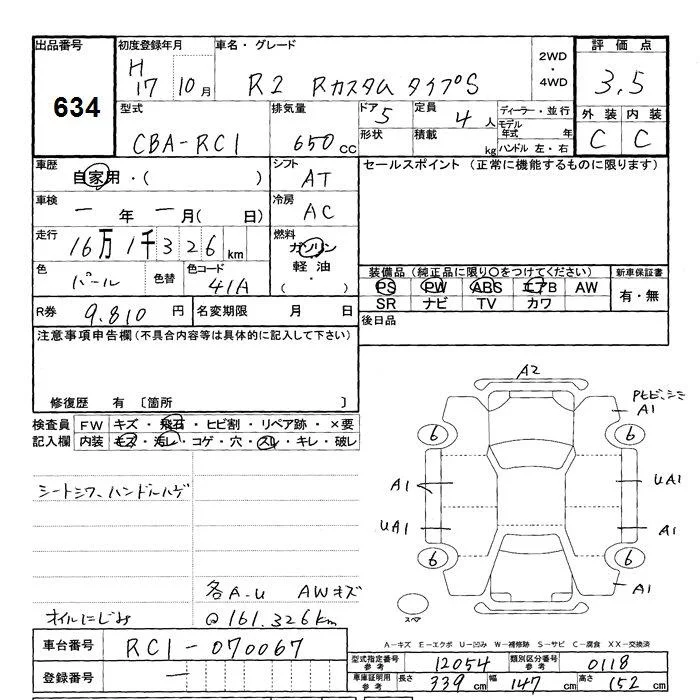 出品番号 初度登録年月 車名・グレード 2WD・4WD 評価点
634 H17 10月 R2 Rカスタム タイプS 3.5
型式 排気量 ドア 定員 ディーラー・並行 外装 内装
CBA-RC1 650cc 5 4人 モデル年式 年 C C
形状 積載 kg ハンドル 左・右
車歴 自家用・( ) シフト AT セールスポイント (正常に機能するものに限ります)
車検 一年 一月( 日) 冷房 AC
走行 16万1千326km 燃料 ガソリン・軽油・( )
色 パール 色替 色コード 41A 装備品(純正品に限り○をつけてください) 新車保証書
PS PW ABS エアB AW 有・無
SR ナビ TV カワ
R券 9.810円 名変期限 月 日 後日品
注意事項申告欄(不具合内容等は具体的に記入して下さい)
修復歴 有 〔箇所 〕
A2
検査員記入欄 FW キズ・飛石・ヒビ割・リペア跡・×要
内装 キズ・汚レ・コゲ・穴・スレ・キレ・破レ
A1
6 6
シートシワ、ハンドルハゲ
A1 UA1
UA1 A1
6 6
A1
各A-U AWキズ
オイルにじみ @161.326km
スペア
車台番号 RC1-070067
A-キズ E-エクボ U-凹み W-補修跡 S-サビ C-腐食 XX-交換済
型式指定番号 参考 12054 類別区分番号 参考 0118
登録番号 一
車庫証明用 参考 長さ 339cm 幅 147cm 高さ 152cm